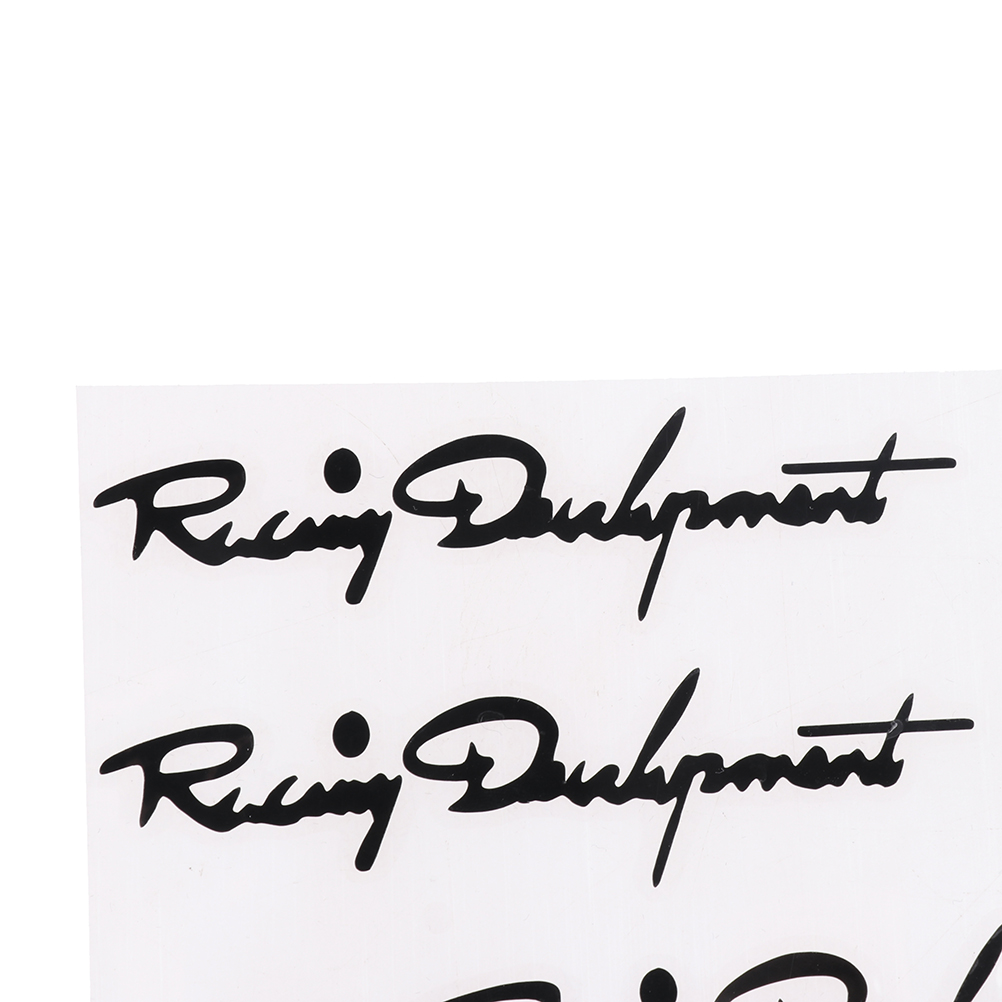 Racing Development
Racing Development